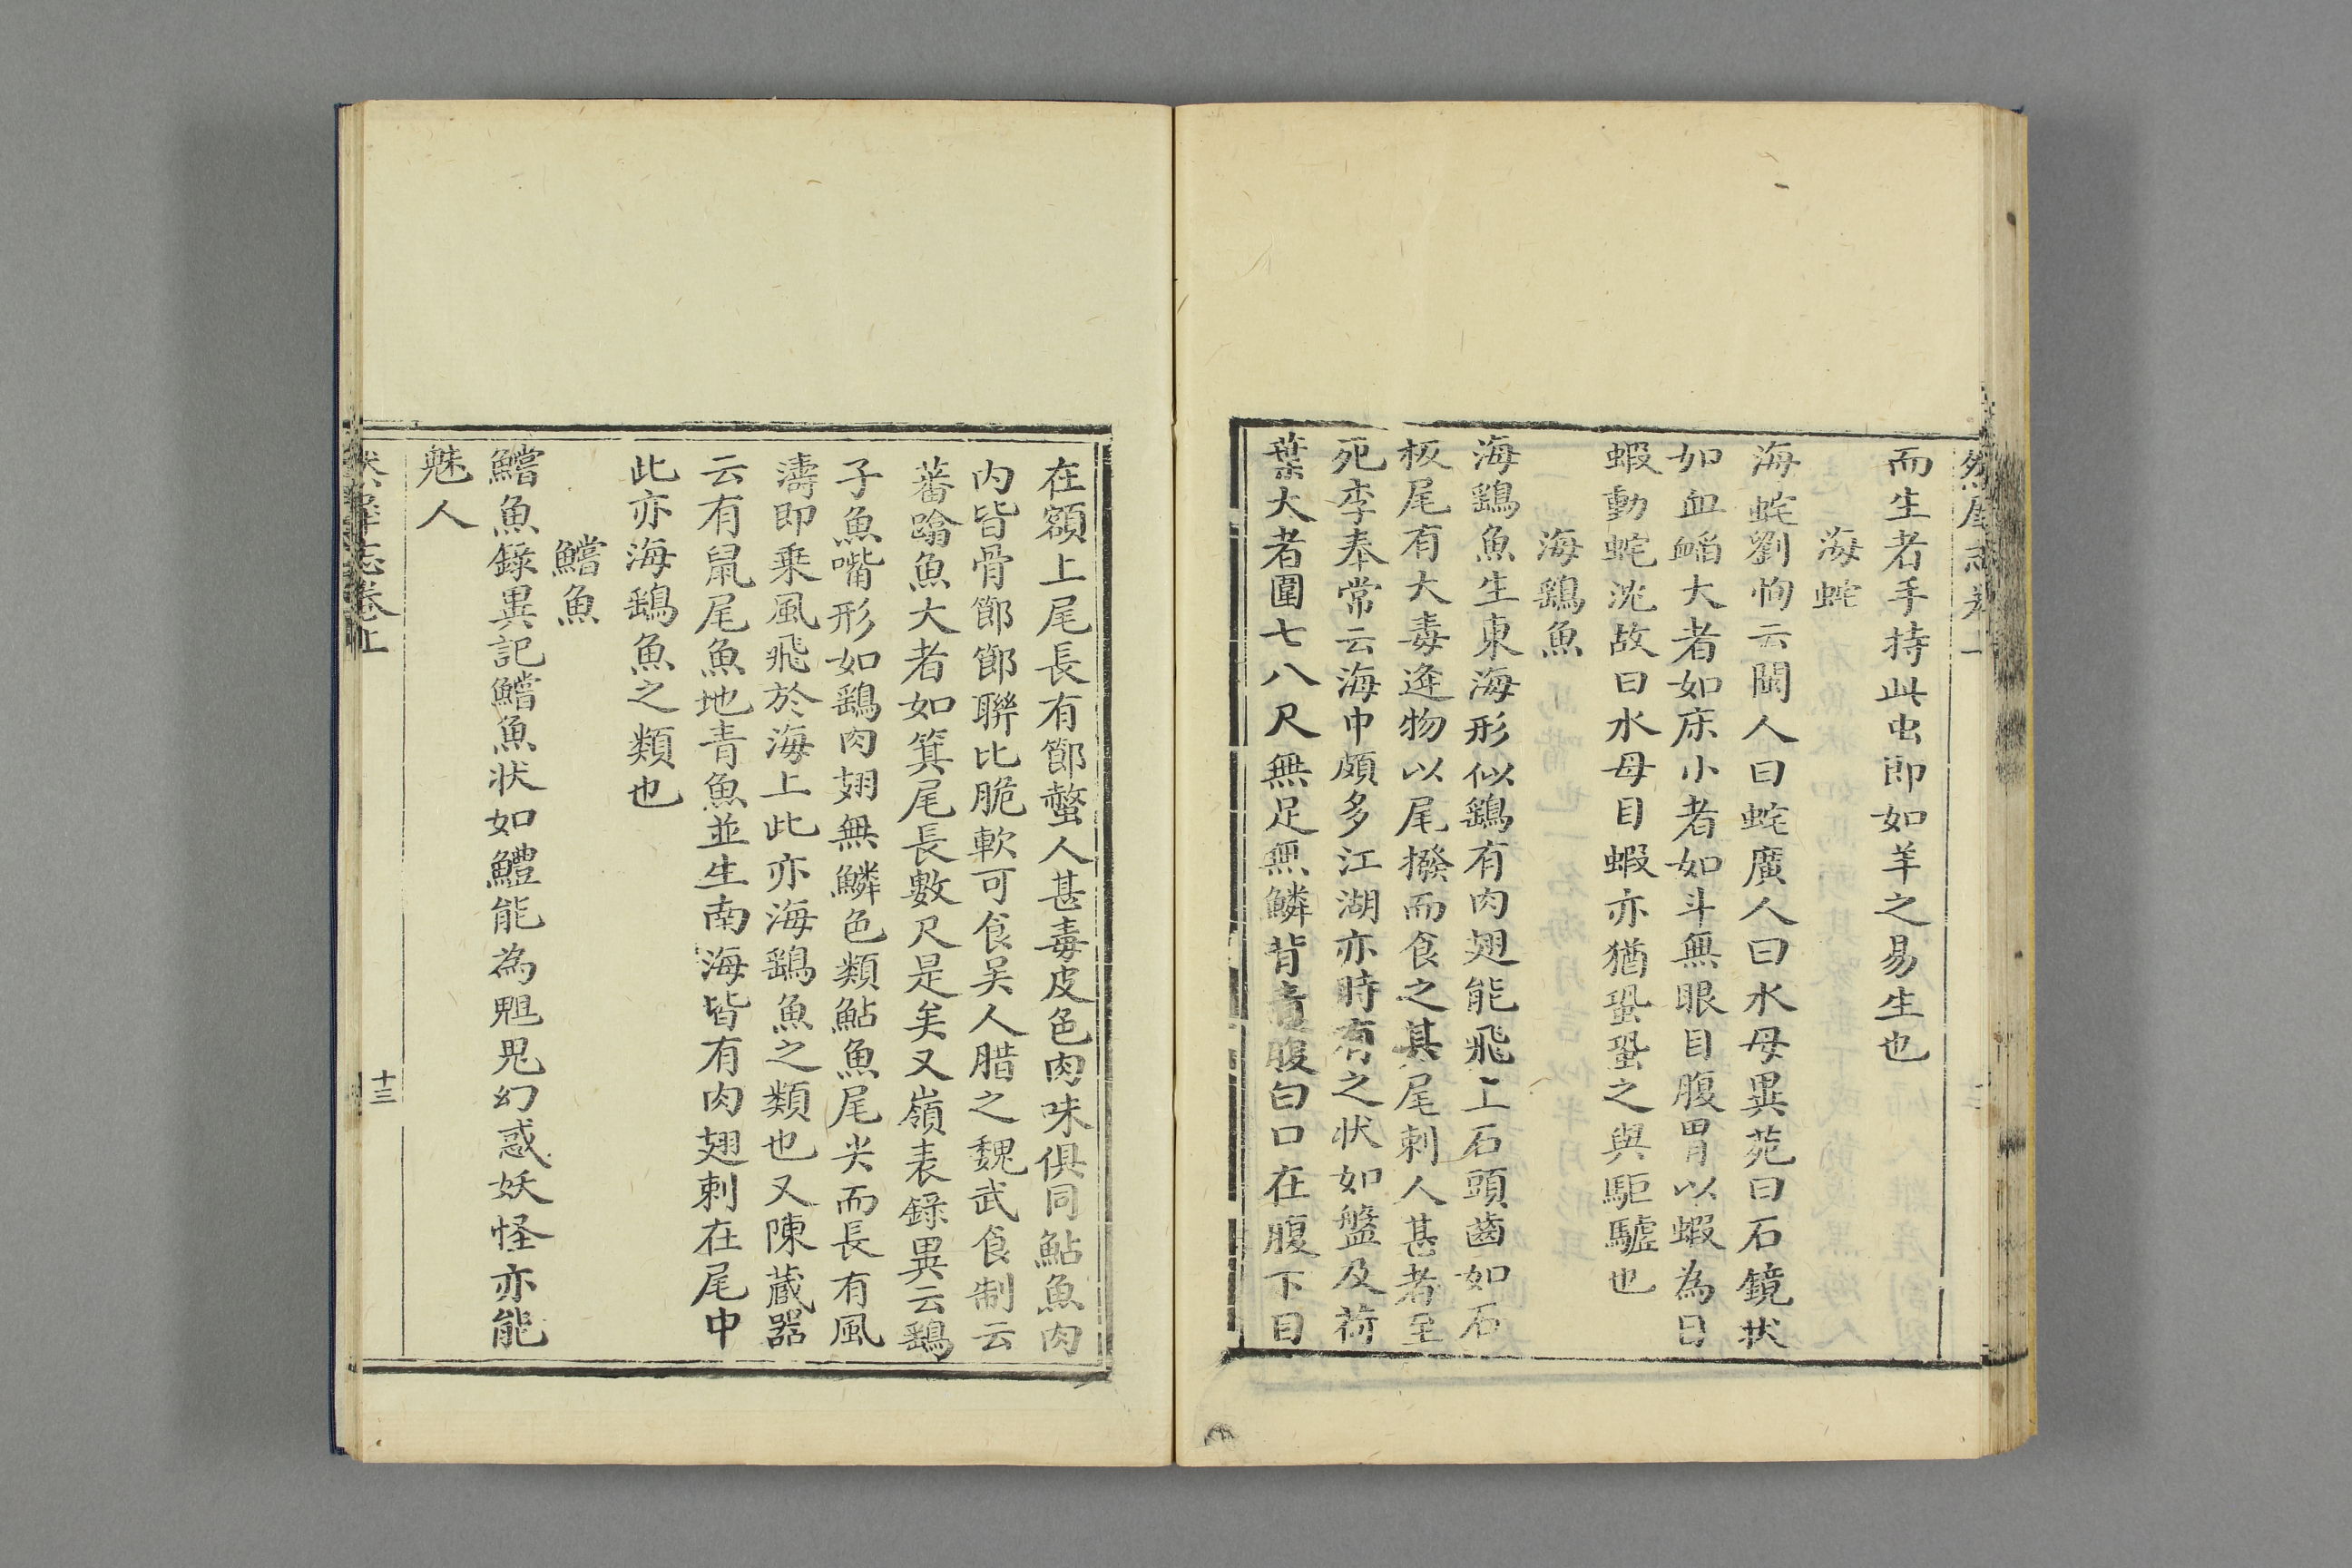 而生者手持此虫即如羊之易生也
海蛇
海蛇劉恂云閩人曰蛇廣人曰水母異苑曰石鏡状
如血䘓大者如床小者如斗無眼目腹胃以蝦為目
蝦動蛇沈故曰水母目蝦亦猶蛩蛩之與駏驉也
海鷂魚
海鷂魚生東海形似鷂有肉翅能飛上石頭齒如石
板尾有大毒逢物以尾撥而食之其尾刺人甚者至
死李奉常云海中頗多江湖亦時有之状如盤及荷
葉大者圍七八尺無足無鱗背青腹白口在腹下目
在額上尾長有節螫人甚毒皮色肉味俱同鮎魚肉
内皆骨節節聯比脆軟可食吴人腊之魏武食制云
蕃踰魚大者如箕尾長數尺是矣又嶺表錄異云鷂
子魚嘴形如鷂肉翅無鱗色類鮎魚尾尖而長有風
濤即乗風飛於海上此亦海鷂魚之類也又陳蔵器
云有鼠尾魚地青魚並生南海皆有肉翅刺在尾中
此亦海鷂魚之類也
鱨魚
鱨魚錄異記鱨魚状如鱧能為䰡鬼幻惑妖怪亦能
魅人
十三